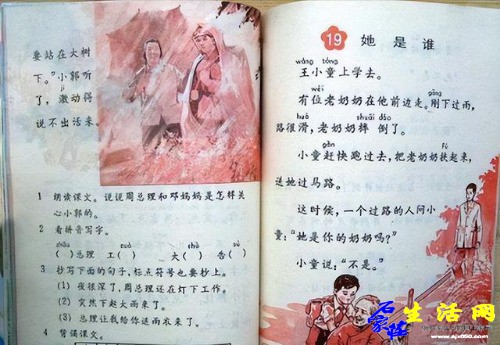 要站在大树
下。"小郭听
jī
了，激动得
说不出话来
1 朗读课文。说说周总理和邓妈妈是怎样关
心小郭的。
2 看拼音写字。
zhōu zuò shù sù
（ ）总理 工（ ） 大（ ） 告（ ）
3 抄写下面的句子，标点符号也要抄上。
（1）夜很深了，周总理还在灯下工作。
（2）突然下起大雨来了。
（3）总理让我给你送雨衣来了。
4 背诵课文。
19 她是谁
wáng tóng
王小童上学去。
wèi gāng
有位老奶奶在他前边走。刚下过雨，
huá shuāi dǎo
路很滑，老奶奶摔倒了。
gǎn fú
小童赶快跑过去，把老奶奶扶起来，
送她过马路。
这时候，一个过路的人问小
童："她是你的奶奶吗？"
小童说："不是。"
石家庄生活网